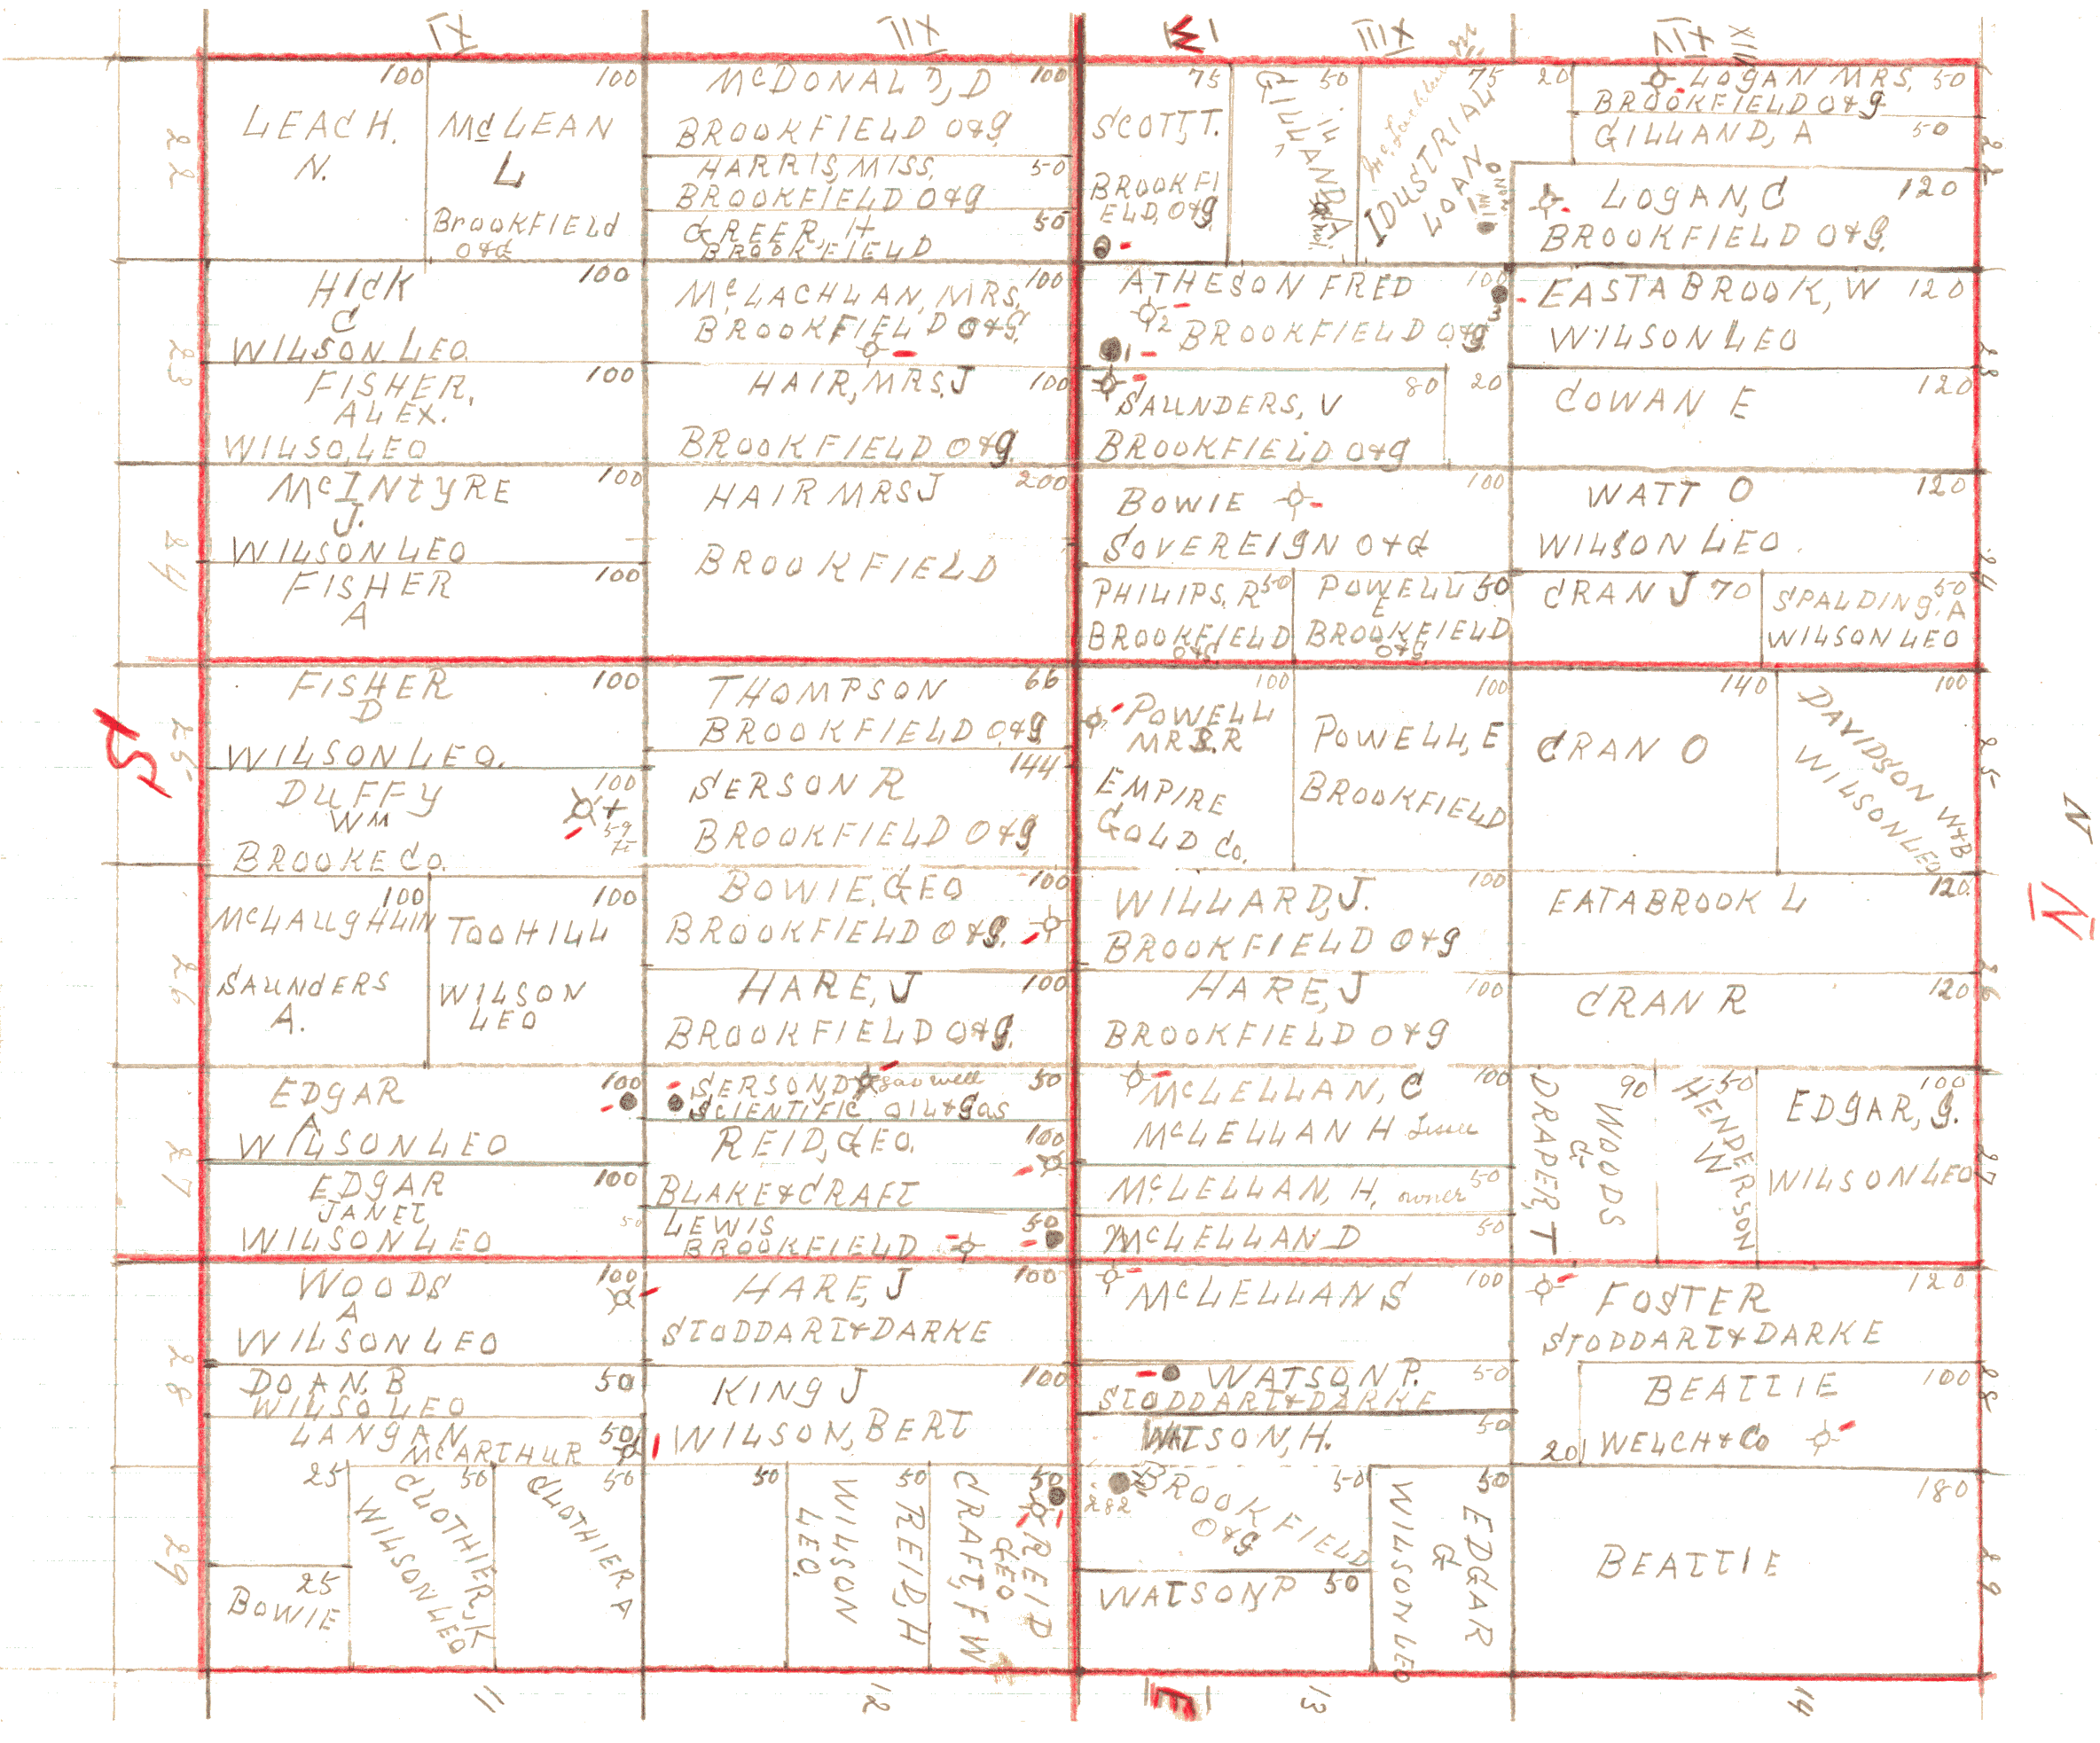 XI
XII
W
XIII
XIV
XIII
22
100
LEACH.
N.
100
McLEAN
L
BROOKFIELD
O&G
McDONALD, D 100
BROOKFIELD O&G
HARRIS, MISS, 50
BROOKFIELD O&G
GREER, H 50
BROOKFIELD
75
SCOTT, T.
BROOKFI
ELD, O&G
50
GILLAND, A
75
IDUSTRIAL
LOAN
20
LOGAN MRS. 50
BROOKFIELD O&G
GILLAND, A 50
LOGAN, C 120
BROOKFIELD O&G.
22
23
HICK 100
C
WILSON LEO.
FISHER, 100
ALEX.
WILSO, LEO
McLACHLAN, MRS. 100
BROOKFIELD O&G.
HAIR, MRS. J 100
BROOKFIELD O&G.
ATHESON FRED 100
2
BROOKFIELD O&G
1
3
SAUNDERS, V 80
BROOKFIELD O&G
20
EASTABROOK, W 120
WILSON LEO
COWAN E 120
23
24
McINTYRE 100
J.
WILSON LEO
FISHER 100
A
HAIR MRS J 200
BROOKFIELD
BOWIE 100
SOVEREIGN O&G
PHILIPS, R 50
BROOKFIELD
O&G
POWELL 50
E
BROOKFIELD
O&G
WATT O 120
WILSON LEO.
CRAN J 70
SPALDING, A 50
WILSON LEO
24
S
25
FISHER 100
D
WILSON LEO.
DUFFY 100
WM
59
BROOKE CO.
THOMPSON 66
BROOKFIELD O&G
SERSON R 144
BROOKFIELD O&G
100
POWELL
MRS. R
EMPIRE
GOLD CO.
100
POWELL, E
BROOKFIELD
140
CRAN O
100
DAVIDSON W&B
WILSON LEO
25
N
N
26
100
McLAUGHLIN
SAUNDERS
A.
100
TOOHILL
WILSON
LEO
BOWIE, GEO 100
BROOKFIELD O&G.
HARE, J 100
BROOKFIELD O&G.
WILLARD, J. 100
BROOKFIELD O&G
HARE, J 100
BROOKFIELD O&G
EATABROOK L 120
CRAN R 120
26
27
EDGAR 100
A
WILSON LEO
EDGAR 100
JANET
WILSON LEO 50
SERSON D gas well 50
SCIENTIFIC OIL & GAS
REID, GEO. 100
BLAKE & CRAFT
LEWIS 50
BROOKFIELD
McLELLAN, C 100
McLELLAN H Lessee
McLELLAN, H, owner 50
McLELLAN D 50
DRAPER, T
90
WOODS
G
50
HENDERSON
W
100
EDGAR, G.
WILSON LEO
27
28
WOODS 100
A
WILSON LEO
DOAN, B 50
WILSO LEO
LANGAN 50
McARTHUR
HARE, J 100
STODDART & DARKE
KING J 100
WILSON, BERT
McLELLAN S 100
WATSON P. 50
STODDART & DARKE
WATSON, H. 50
FOSTER 120
STODDART & DARKE
BEATTIE 100
WELCH & CO
20
28
29
25
25
BOWIE
50
CLOTHIER, K
WILSON LEO
50
CLOTHIER A
50
50
WILSON
LEO.
REID, H
50
CRAFT, F W
REID
GEO
282
BROOKFIELD 50
O&G
WATSON, P 50
50
WILSON LEO
EDGAR
G
180
BEATTIE
29
11
12
E
13
14